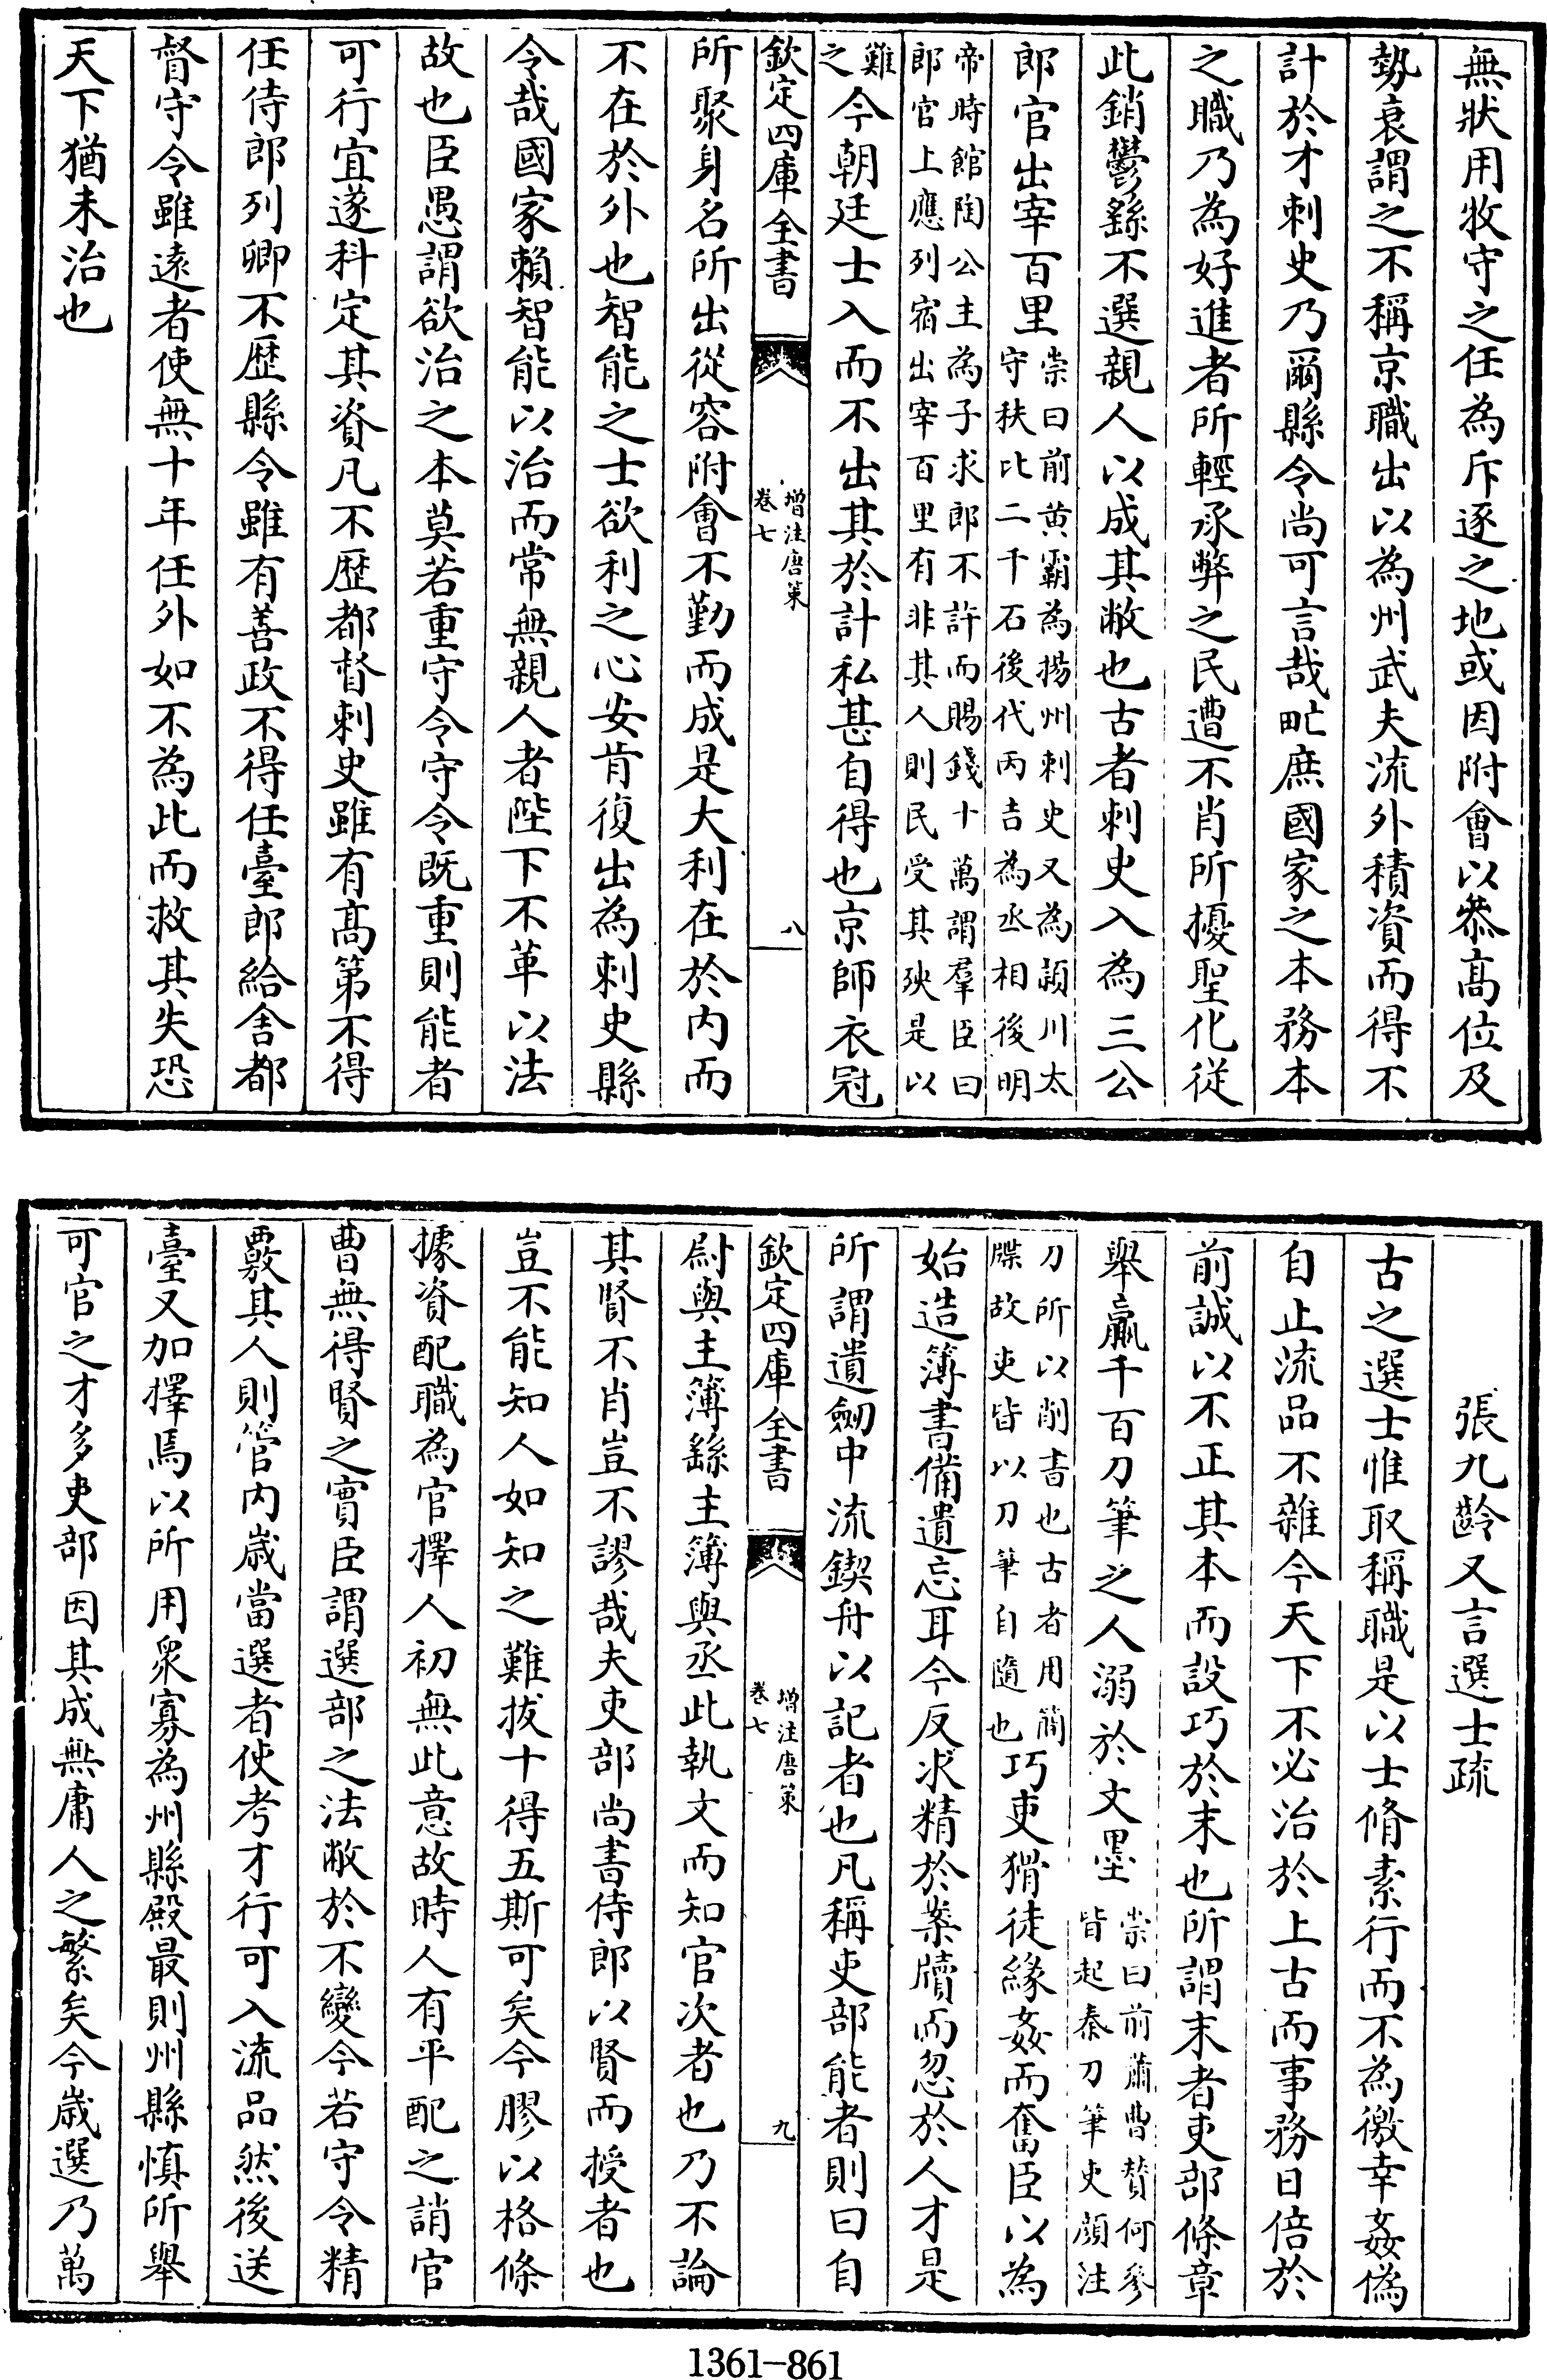 無狀用牧守之任為斥逐之地或因附會以忝髙位及
勢衰謂之不稱京職出以為州武夫流外積資而得不
計於才刺史乃爾縣令尚可言哉甿庶國家之本務本
之職乃為好進者所輕承弊之民遭不肖所擾聖化從
此銷鬱繇不選親人以成其敝也古者刺史入為三公
郎官出宰百里
崇曰前黄霸為揚州刺史又為潁川太
守秩比二千石後代丙吉為丞相後明
帝時館陶公主為子求郎不許而賜錢十萬謂羣臣曰
郎官上應列宿出宰百里有非其人則民受其殃是以
難
之
今朝廷士入而不出其於計私甚自得也京師衣冠
欽定四庫全書
增注唐策
卷七
八
所聚身名所出從容附會不勤而成是大利在於内而
不在於外也智能之士欲利之心安肯復出為刺史縣
令哉國家賴智能以治而常無親人者陛下不革以法
故也臣愚謂欲治之本莫若重守令守令既重則能者
可行宜遂科定其資凡不歴都督刺史雖有髙第不得
任侍郎列卿不歴縣令雖有善政不得任臺郎給舍都
督守令雖遠者使無十年任外如不為此而救其失恐
天下猶未治也
張九齡又言選士疏
古之選士惟取稱職是以士脩素行而不為徼幸姦偽
自止流品不雜今天下不必治於上古而事務日倍於
前誠以不正其本而設巧於末也所謂末者吏部條章
舉贏千百刀筆之人溺於文墨
崇曰前蕭曹賛何參
皆起秦刀筆吏顔注
刀所以削書也古者用簡
牒故吏皆以刀筆自隨也
巧吏猾徒緣姦而奮臣以為
始造簿書備遺忘耳今反求精於案牘而忽於人才是
所謂遺劒中流鍥舟以記者也凡稱吏部能者則曰自
欽定四庫全書
增注唐策
卷七
九
尉與主簿繇主簿與丞此執文而知官次者也乃不論
其賢不肖豈不謬哉夫吏部尚書侍郎以賢而授者也
豈不能知人如知之難拔十得五斯可矣今膠以格條
據資配職為官擇人初無此意故時人有平配之誚官
曹無得賢之實臣謂選部之法敝於不變今若守令精
覈其人則管内嵗當選者使考才行可入流品然後送
臺又加擇焉以所用衆寡為州縣殿最則州縣慎所舉
可官之才多吏部因其成無庸人之繁矣今嵗選乃萬
1361-861